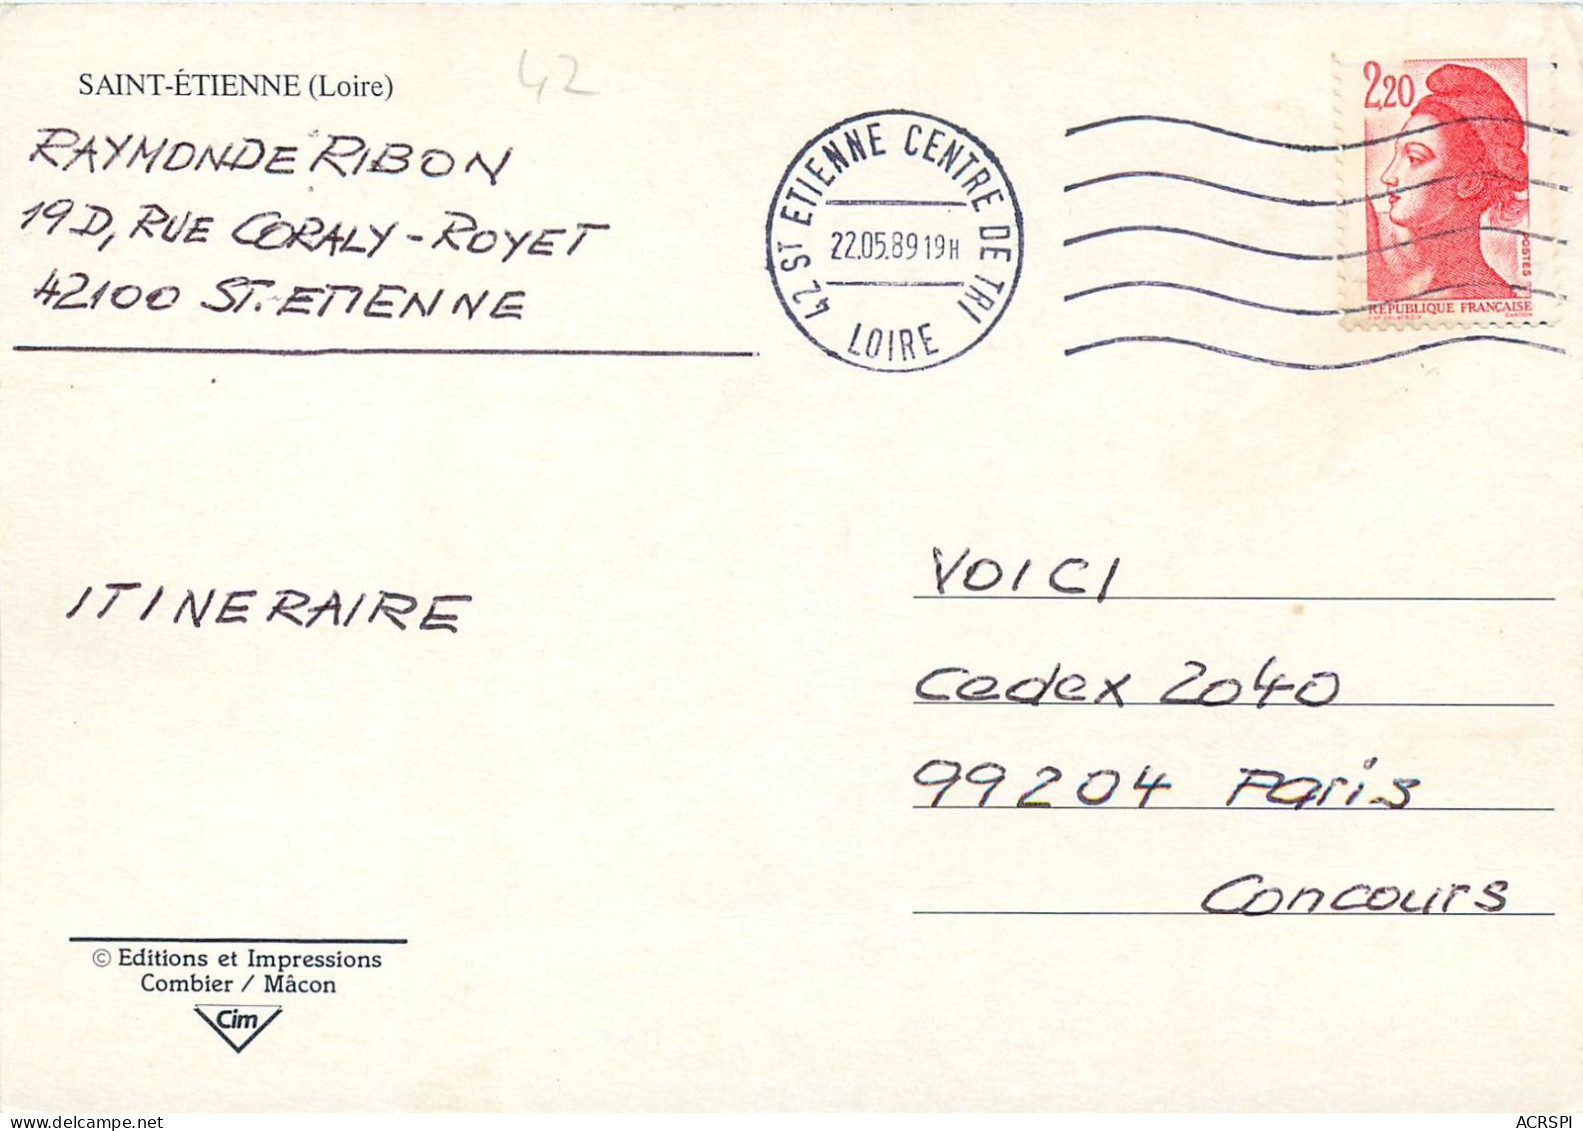 SAINT-ÉTIENNE (Loire)
42
RAYMONDE RIBON
19D, RUE CORALY-ROYET
42100 ST. ETIENNE
42 ST ETIENNE CENTRE DE TRI
22.05.89 19H
LOIRE
2,20
POSTES
RÉPUBLIQUE FRANÇAISE
GANDON
ITINERAIRE
VOICI
Cedex 2040
99204 Paris
Concours
© Editions et Impressions
Combier / Mâcon
Cim
ACRSPI